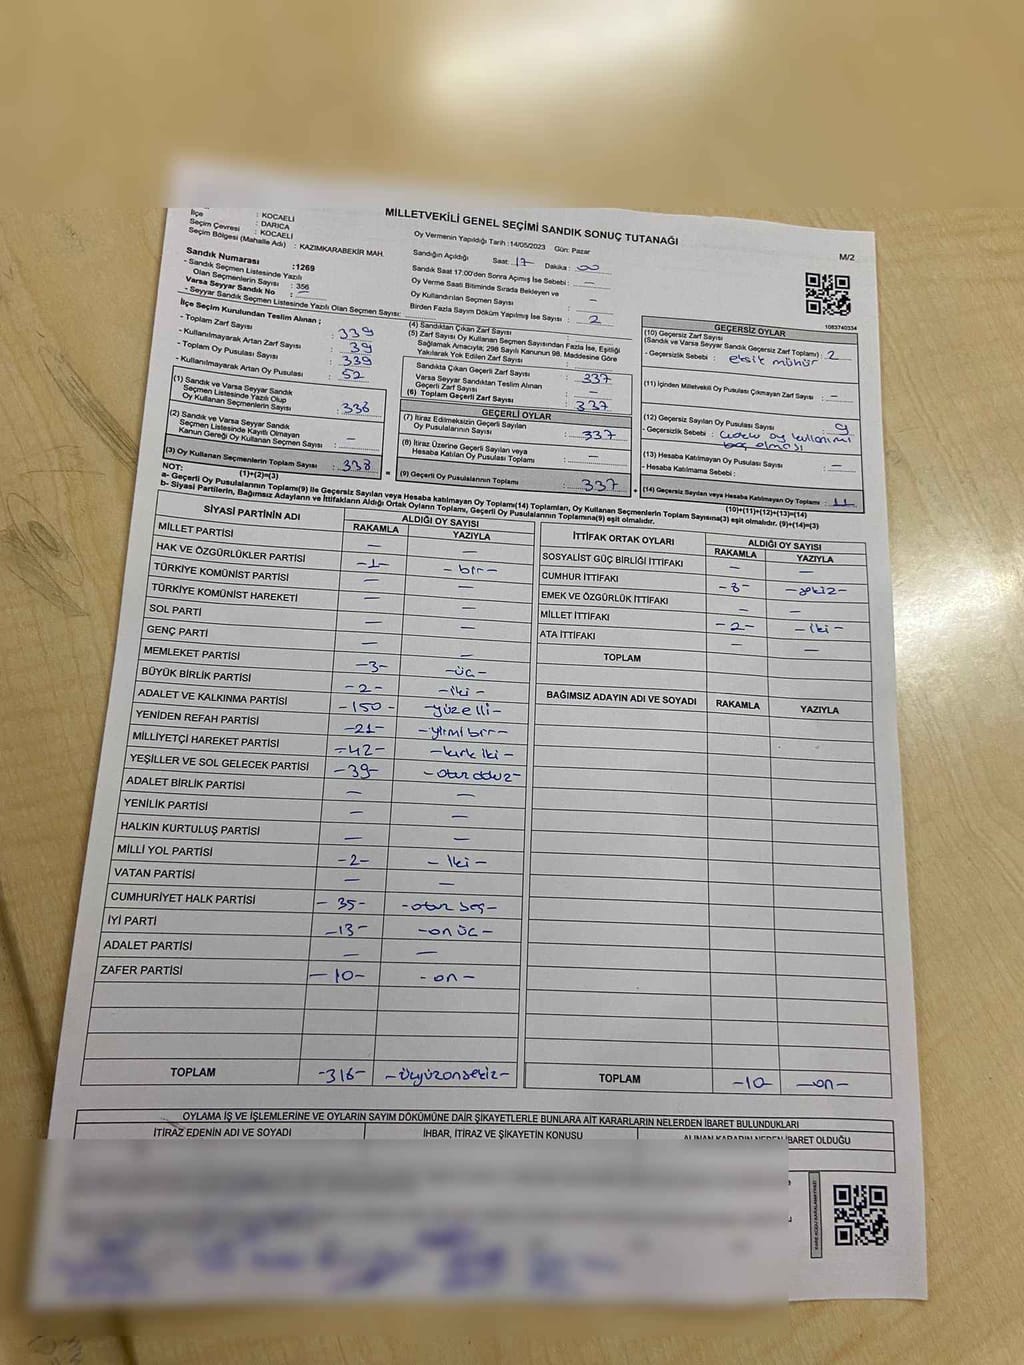 MİLLETVEKİLİ GENEL SEÇİMİ SANDIK SONUÇ TUTANAĞI
M/2
İlçe : KOCAELİ
: DARICA
Seçim Çevresi : KOCAELİ
Seçim Bölgesi (Mahalle Adı) : KAZIMKARABEKİR MAH.
Sandık Numarası :1269
- Sandık Seçmen Listesinde Yazılı
Olan Seçmenlerin Sayısı : 356
Varsa Seyyar Sandık No : –
- Seyyar Sandık Seçmen Listesinde Yazılı Olan Seçmen Sayısı:
Oy Vermenin Yapıldığı Tarih :14/05/2023 Gün: Pazar
Sandığın Açıldığı Saat: 17 Dakika: 00
Sandık Saat 17:00'den Sonra Açılmış İse Sebebi : –
Oy Verme Saati Bitiminde Sırada Bekleyen ve
Oy Kullandırılan Seçmen Sayısı : –
Birden Fazla Sayım Döküm Yapılmış İse Sayısı : 2
1083740334
İlçe Seçim Kurulundan Teslim Alınan ;
- Toplam Zarf Sayısı : 339
- Kullanılmayarak Artan Zarf Sayısı : 39
- Toplam Oy Pusulası Sayısı : 339
- Kullanılmayarak Artan Oy Pusulası : 52
(1) Sandık ve Varsa Seyyar Sandık
Seçmen Listesinde Yazılı Olup
Oy Kullanan Seçmenlerin Sayısı : 338
(2) Sandık ve Varsa Seyyar Sandık
Seçmen Listesinde Kayıtlı Olmayan
Kanun Gereği Oy Kullanan Seçmen Sayısı : –
(3) Oy Kullanan Seçmenlerin Toplam Sayısı : 338
(1)+(2)=(3)
(4) Sandıktan Çıkan Zarf Sayısı
(5) Zarf Sayısı Oy Kullanan Seçmen Sayısından Fazla İse, Eşitliği
Sağlamak Amacıyla; 298 Sayılı Kanunun 98. Maddesine Göre
Yakılarak Yok Edilen Zarf Sayısı
Sandıkta Çıkan Geçerli Zarf Sayısı : 337
Varsa Seyyar Sandıktan Teslim Alınan
Geçerli Zarf Sayısı : –
(6) Toplam Geçerli Zarf Sayısı : 337
GEÇERLİ OYLAR
(7) İtiraz Edilmeksizin Geçerli Sayılan
Oy Pusulalarının Sayısı : 337
(8) İtiraz Üzerine Geçerli Sayılan veya
Hesaba Katılan Oy Pusulası Toplamı : –
(9) Geçerli Oy Pusulalarının Toplamı : 337
GEÇERSİZ OYLAR
(10) Geçersiz Zarf Sayısı
(Sandık ve Varsa Seyyar Sandık Geçersiz Zarf Toplamı) : 2
- Geçersizlik Sebebi : eksik mühür
(11) İçinden Milletvekili Oy Pusulası Çıkmayan Zarf Sayısı : –
(12) Geçersiz Sayılan Oy Pusulası Sayısı : 9
- Geçersizlik Sebebi : oy kullanımı
boş olması
(13) Hesaba Katılmayan Oy Pusulası Sayısı : –
- Hesaba Katılmama Sebebi :
(14) Geçersiz Sayılan veya Hesaba Katılmayan Oy Toplamı : 11
(10)+(11)+(12)+(13)=(14)
NOT:
a- Geçerli Oy Pusulalarının Toplamı(9) ile Geçersiz Sayılan veya Hesaba katılmayan Oy Toplamı(14) Toplamları, Oy Kullanan Seçmenlerin Toplam Sayısına(3) eşit olmalıdır. (9)+(14)=(3)
b- Siyasi Partilerin, Bağımsız Adayların ve İttifakların Aldığı Ortak Oyların Toplamı, Geçerli Oy Pusulalarının Toplamına(9) eşit olmalıdır.
SİYASİ PARTİNİN ADI ALDIĞI OY SAYISI
RAKAMLA YAZIYLA
MİLLET PARTİSİ – –
HAK VE ÖZGÜRLÜKLER PARTİSİ -1- -bir-
TÜRKİYE KOMÜNİST PARTİSİ – –
TÜRKİYE KOMÜNİST HAREKETİ – –
SOL PARTİ – –
GENÇ PARTİ – –
MEMLEKET PARTİSİ -3- -üç-
BÜYÜK BİRLİK PARTİSİ -2- -iki-
ADALET VE KALKINMA PARTİSİ -150- -yüzelli-
YENİDEN REFAH PARTİSİ -21- -yirmi bir-
MİLLİYETÇİ HAREKET PARTİSİ -42- -kırk iki-
YEŞİLLER VE SOL GELECEK PARTİSİ -39- -otuz dokuz-
ADALET BİRLİK PARTİSİ – –
YENİLİK PARTİSİ – –
HALKIN KURTULUŞ PARTİSİ – –
MİLLİ YOL PARTİSİ -2- -iki-
VATAN PARTİSİ – –
CUMHURİYET HALK PARTİSİ -35- -otuz beş-
İYİ PARTİ -13- -on üç-
ADALET PARTİSİ – –
ZAFER PARTİSİ -10- -on-
TOPLAM -318- -üçyüzonsekiz-
İTTİFAK ORTAK OYLARI ALDIĞI OY SAYISI
RAKAMLA YAZIYLA
SOSYALİST GÜÇ BİRLİĞİ İTTİFAKI – –
CUMHUR İTTİFAKI -8- -sekiz-
EMEK VE ÖZGÜRLÜK İTTİFAKI – –
MİLLET İTTİFAKI -2- -iki-
ATA İTTİFAKI – –
TOPLAM
BAĞIMSIZ ADAYIN ADI VE SOYADI RAKAMLA YAZIYLA
TOPLAM -10- -on-
OYLAMA İŞ VE İŞLEMLERİNE VE OYLARIN SAYIM DÖKÜMÜNE DAİR ŞİKAYETLERLE BUNLARA AİT KARARLARIN NELERDEN İBARET BULUNDUKLARI
İTİRAZ EDENİN ADI VE SOYADI İHBAR, İTİRAZ VE ŞİKAYETİN KONUSU ALINAN KARARIN NEDEN İBARET OLDUĞU